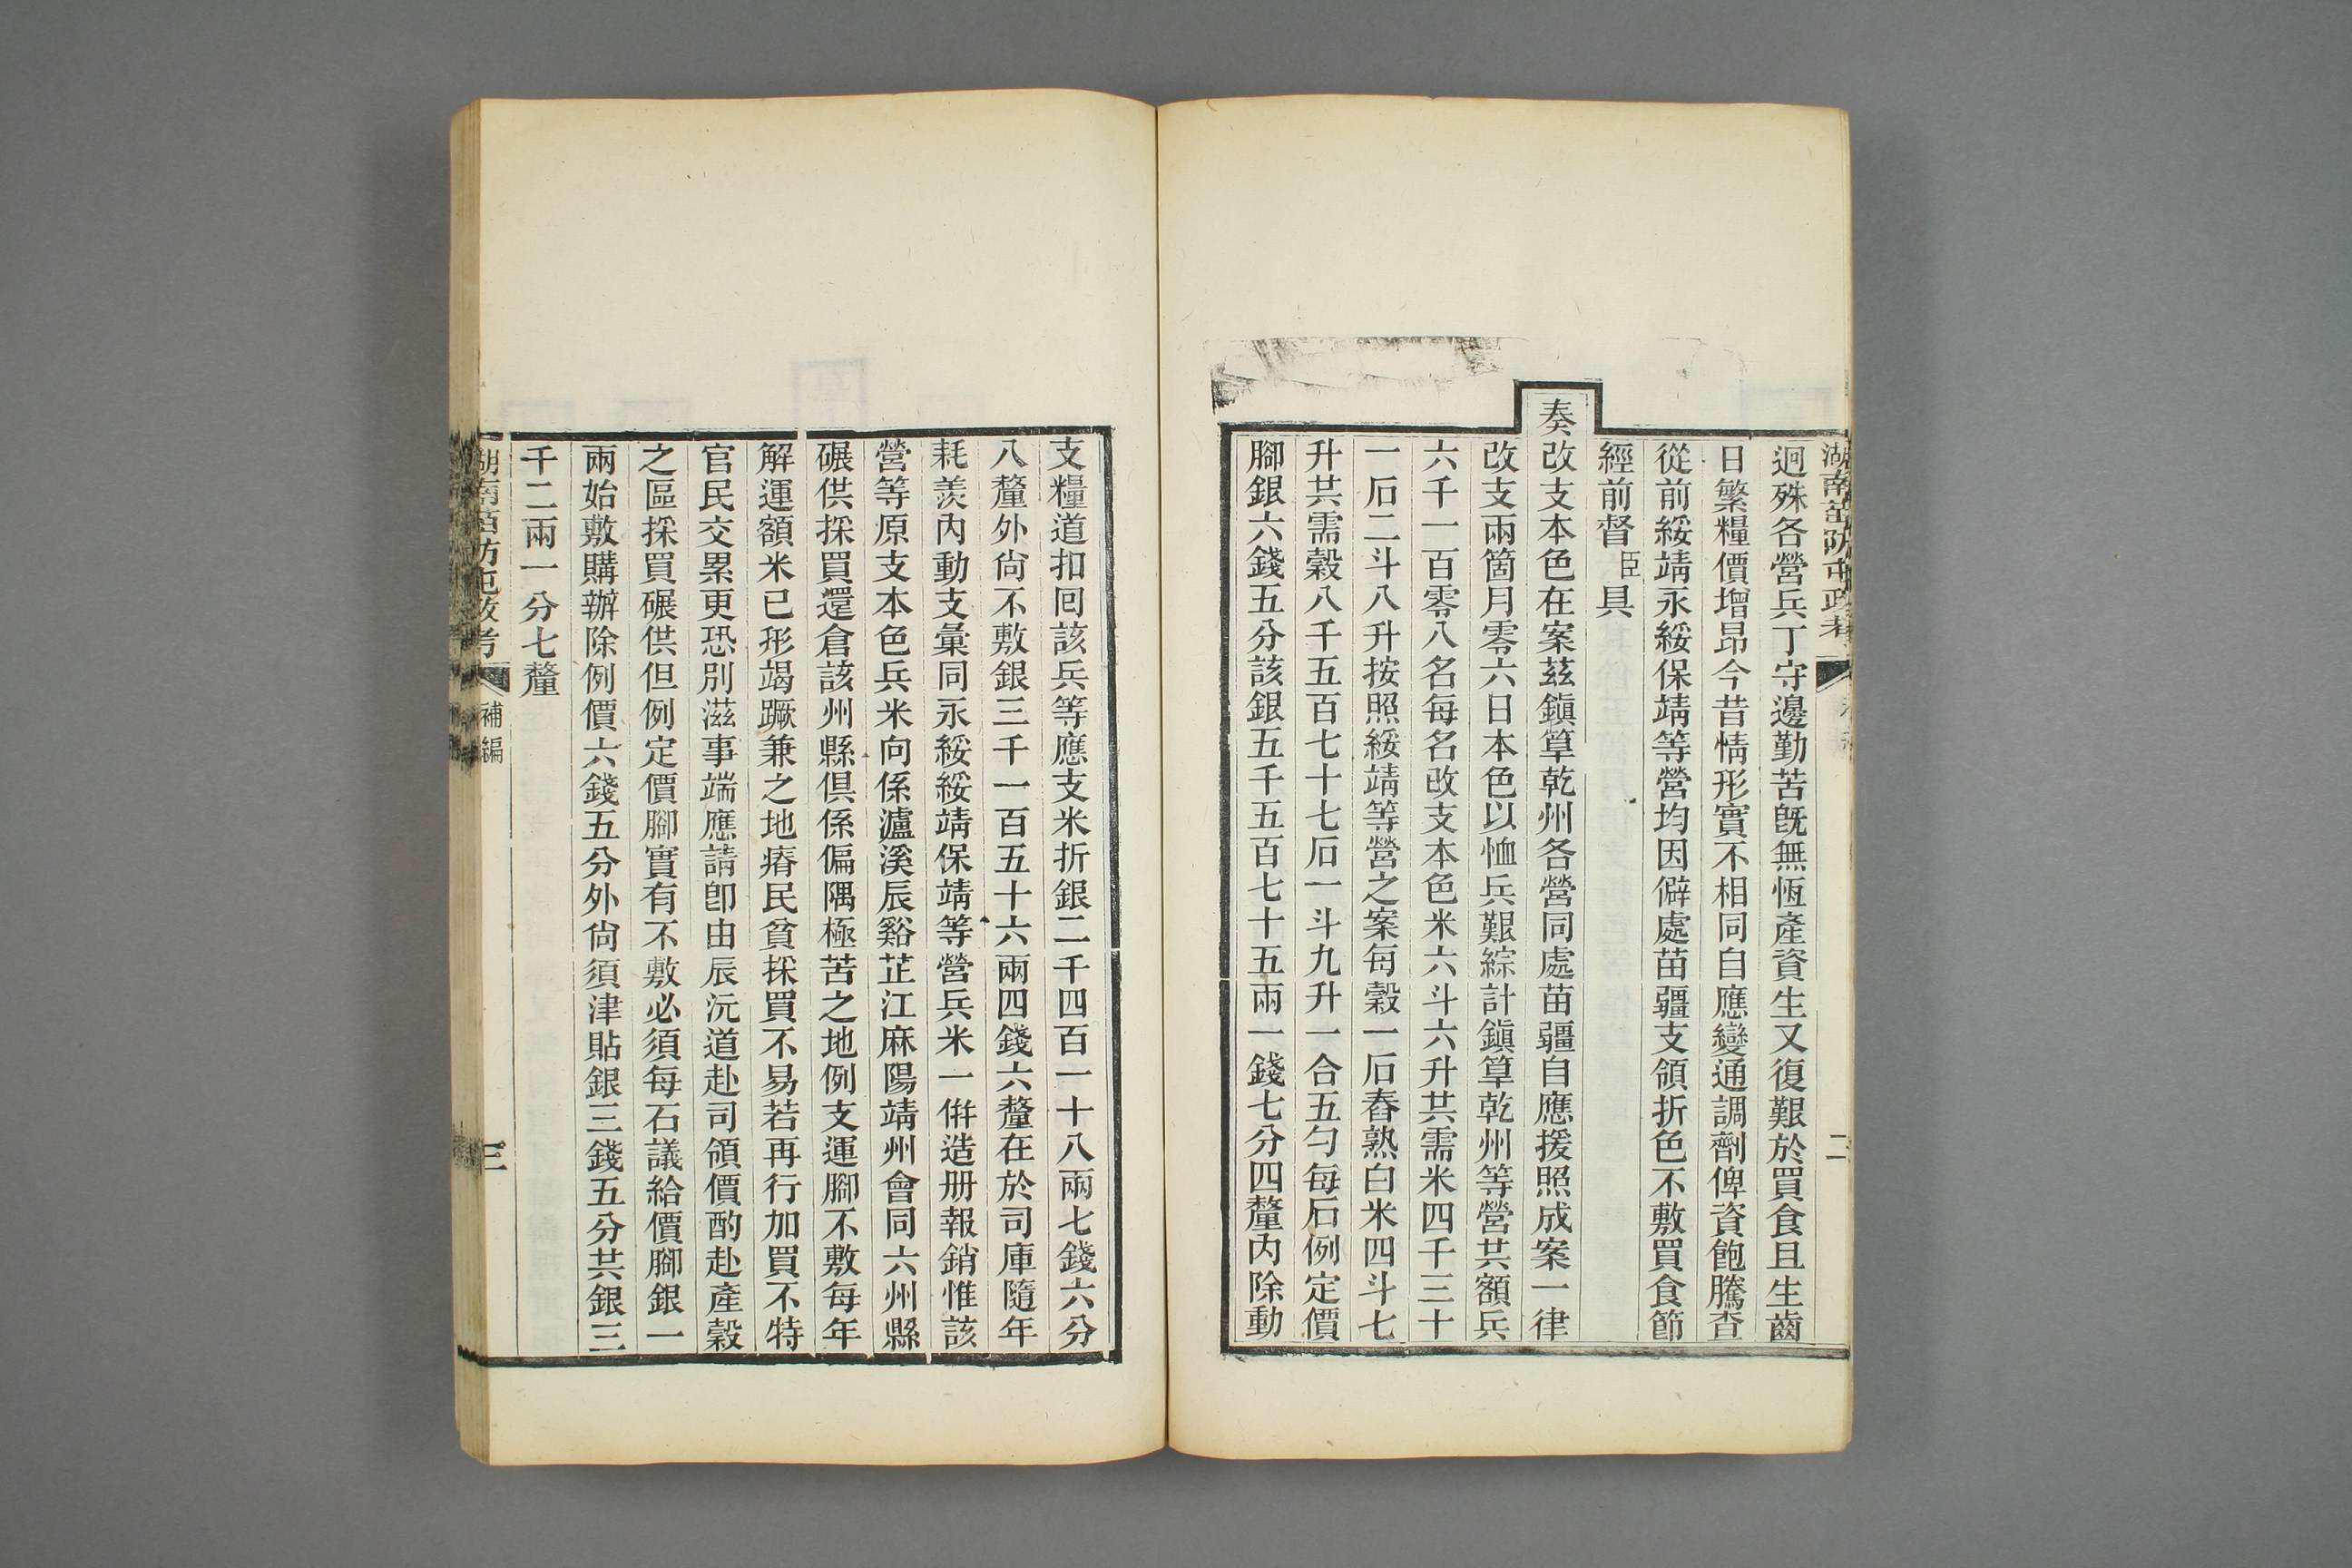 湖南苗防屯政考
二
迥殊各營兵丁守邊勤苦旣無恆產資生又復艱於買食且生齒
日繁糧價增昂今昔情形實不相同自應變通調劑俾資飽騰查
從前綏靖永綏保靖等營均因僻處苗疆支領折色不敷買食節
經前督臣具
奏改支本色在案茲鎭筸乾州各營同處苗疆自應援照成案一律
改支兩箇月零六日本色以恤兵艱綜計鎭筸乾州等營共額兵
六千一百零八名每名改支本色米六斗六升共需米四千三十
一石二斗八升按照綏靖等營之案每穀一石舂熟白米四斗七
升共需穀八千五百七十七石一斗九升一合五勺每石例定價
腳銀六錢五分該銀五千五百七十五兩一錢七分四釐內除動
支糧道扣囘該兵等應支米折銀二千四百一十八兩七錢六分
八釐外尙不敷銀三千一百五十六兩四錢六釐在於司庫隨年
耗羨內動支彙同永綏綏靖保靖等營兵米一倂造册報銷惟該
營等原支本色兵米向係瀘溪辰谿芷江麻陽靖州會同六州縣
碾供採買還倉該州縣俱係偏隅極苦之地例支運腳不敷每年
解運額米已形竭蹶兼之地瘠民貧採買不易若再行加買不特
官民交累更恐別滋事端應請卽由辰沅道赴司領價酌赴產穀
之區採買碾供但例定價腳實有不敷必須每石議給價腳銀一
兩始敷購辦除例價六錢五分外尙須津貼銀三錢五分共銀三
千二兩一分七釐
湖南苗防屯政考
補編
三